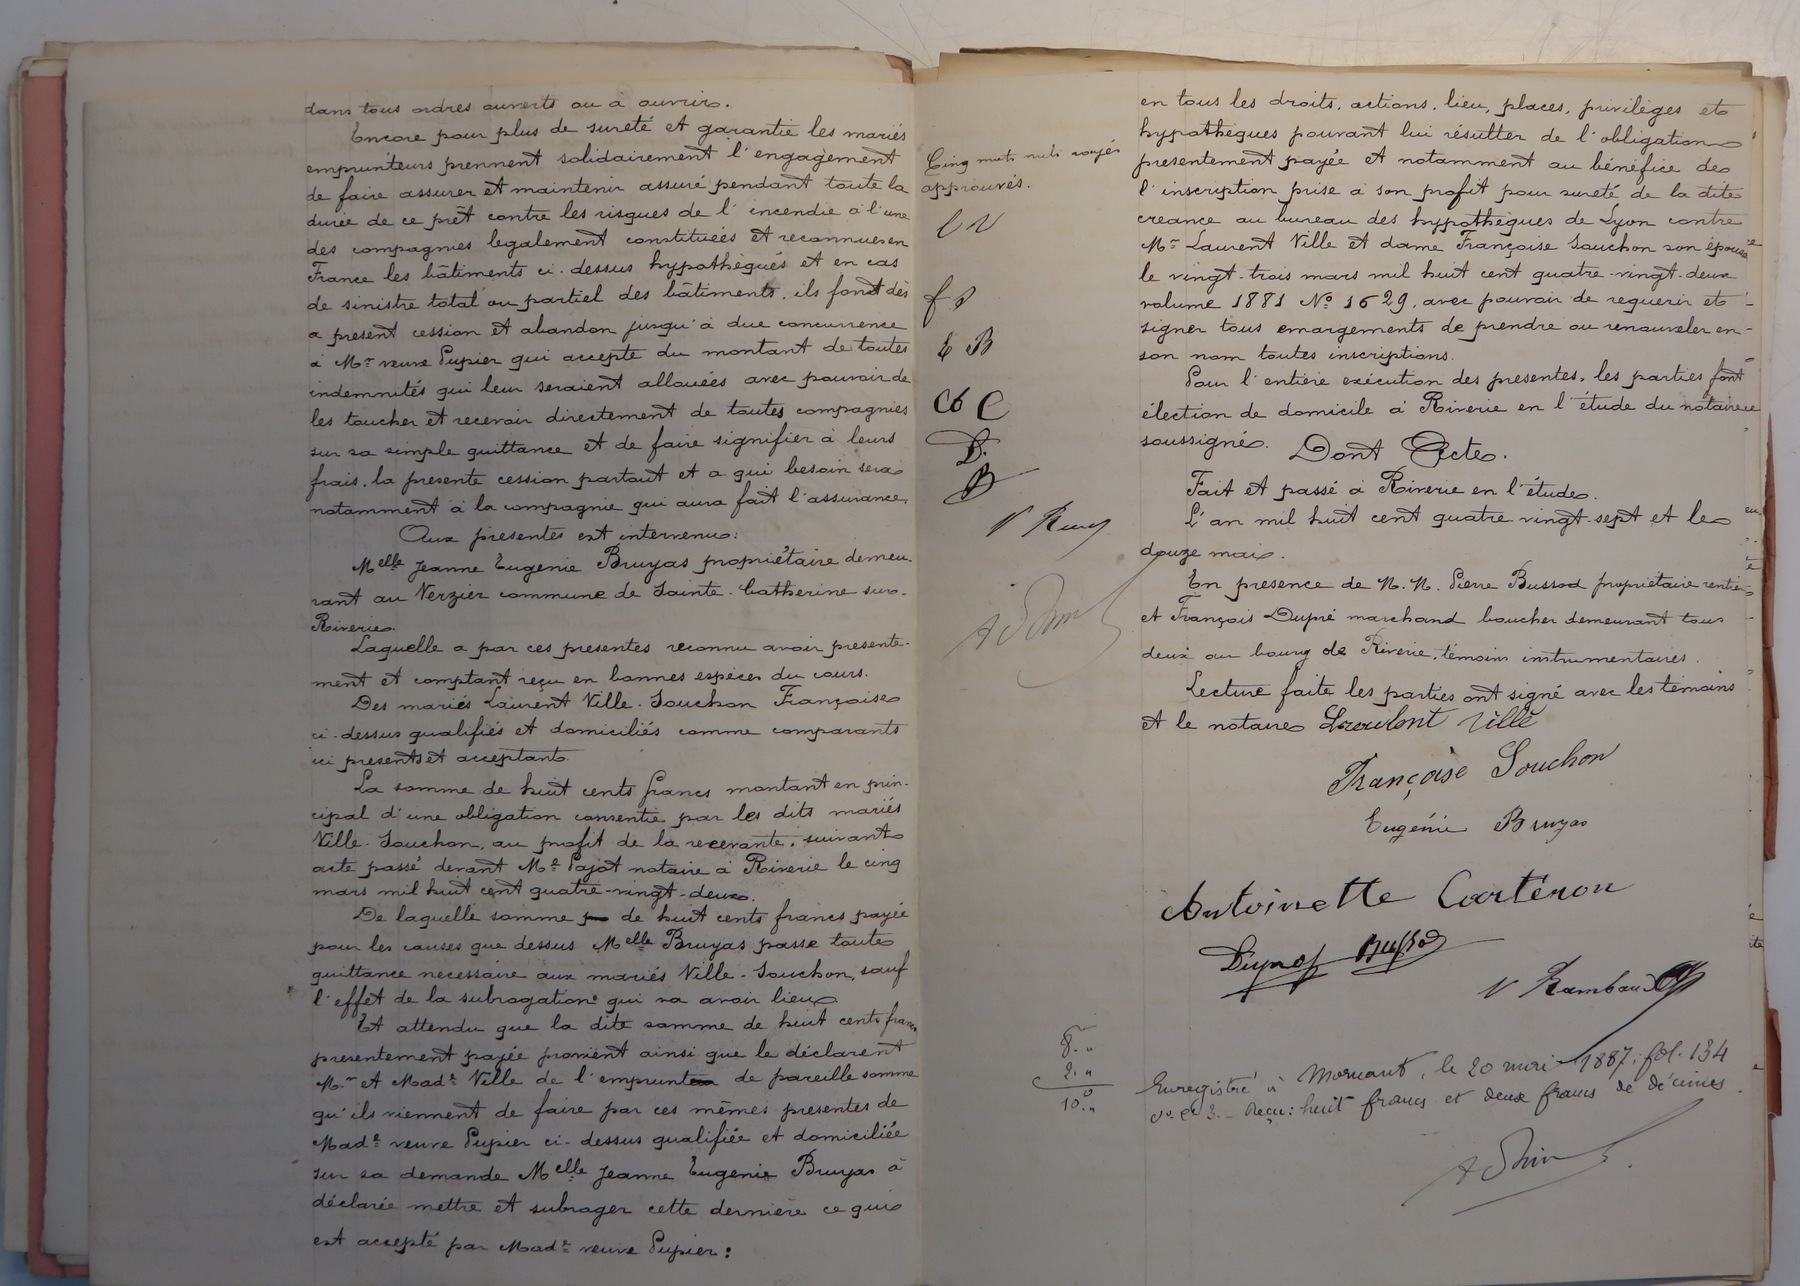 dans tous ordres ouverts ou a ouvrir.
Encore pour plus de sureté et garantie les mariés
emprunteurs prennent solidairement l'engagement
de faire assurer et maintenir assuré pendant toute la
durée de ce prêt contre les risques de l'incendie à l'une
des compagnies legalement constituées et reconnues en
France les bâtiments ci-dessus hypothéqués et en cas
de sinistre total ou partiel des bâtiments, ils font dès
a present cession et abandon jusqu'à due concurrence
à Me veuve Pupier qui accepte du montant de toutes
indemnités qui leur seraient allouées avec pouvoir de
les toucher et recevoir directement de toutes compagnies
sur sa simple quittance et de faire signifier à leurs
frais, la presente cession partout et a qui besoin sera
notamment à la compagnie qui aura fait l'assurance.
Aux presentes est intervenue:
Melle Jeanne Eugenie Bruyas propriétaire demeu-
rant au Verzier commune de Sainte-Catherine sur-
Riverie.
Laquelle a par ces presentes reconnu avoir presente-
ment et comptant reçu en bonnes espèces du cours.
Des mariés Laurent Ville-Souchon Françoise
ci-dessus qualifiés et domiciliés comme comparants
ici presents et acceptant.
La somme de huit cents francs montant en prin-
cipal d'une obligation consentie par les dits mariés
Ville-Souchon, au profit de la recevante, suivant
acte passé devant Me Pajot notaire à Riverie le cinq
mars mil huit cent quatre-vingt-deux.
De laquelle somme de huit cents francs payée
pour les causes que dessus Melle Bruyas passe toute
quittance necessaire aux mariés Ville-Souchon, sauf
l'effet de la subrogation qui va avoir lieu
Et attendu que la dite somme de huit cents francs
presentement payée provient ainsi que le déclarent
Mr et Made Ville de l'emprunt de pareille somme
qu'ils viennent de faire par ces mêmes presentes de
Made veuve Pupier ci-dessus qualifiée et domiciliée
sur sa demande Melle Jeanne Eugenie Bruyas à
déclarée mettre et subroger cette dernière ce qui
est accepté par Made veuve Pupier:
Cinq mots nuls rayés
approuvés.
L V
f s
E B
C
D.
B
V R
en tous les droits, actions, lieu, places, privilèges et
hypothèques pouvant lui résulter de l'obligation
presentement payée et notamment au bénéfice de
l'inscription prise à son profit pour sureté de la dite
creance au bureau des hypothèques de Lyon contre
Mr Laurent Ville et dame Françoise Souchon son épouse
le vingt-trois mars mil huit cent quatre-vingt-deux
volume 1881 No 1629, avec pouvoir de requerir et
signer tous emargements de prendre ou renouveler en
son nom toutes inscriptions.
Pour l'entière exécution des presentes, les parties font
élection de domicile à Riverie en l'étude du notaire
soussigné. Dont Acte.
Fait et passé à Riverie en l'étude.
L'an mil huit cent quatre-vingt-sept et le
douze mai.
En presence de M.M. Pierre Bussod propriétaire rentier
et François Dupré marchand boucher demeurant tous
deux au bourg de Riverie, témoins instrumentaires.
Lecture faite les parties ont signé avec les témoins
et le notaire Laurent Ville
Françoise Souchon
Eugénie Bruyas
Antoinette Cartéron
Dupré Bussod
V Rambaud
8. "
2. "
10. "
Enregistré à Mornant, le 20 mai 1887, fol. 134
Vo Ce 3. - Reçu: huit francs et deux francs de décimes.